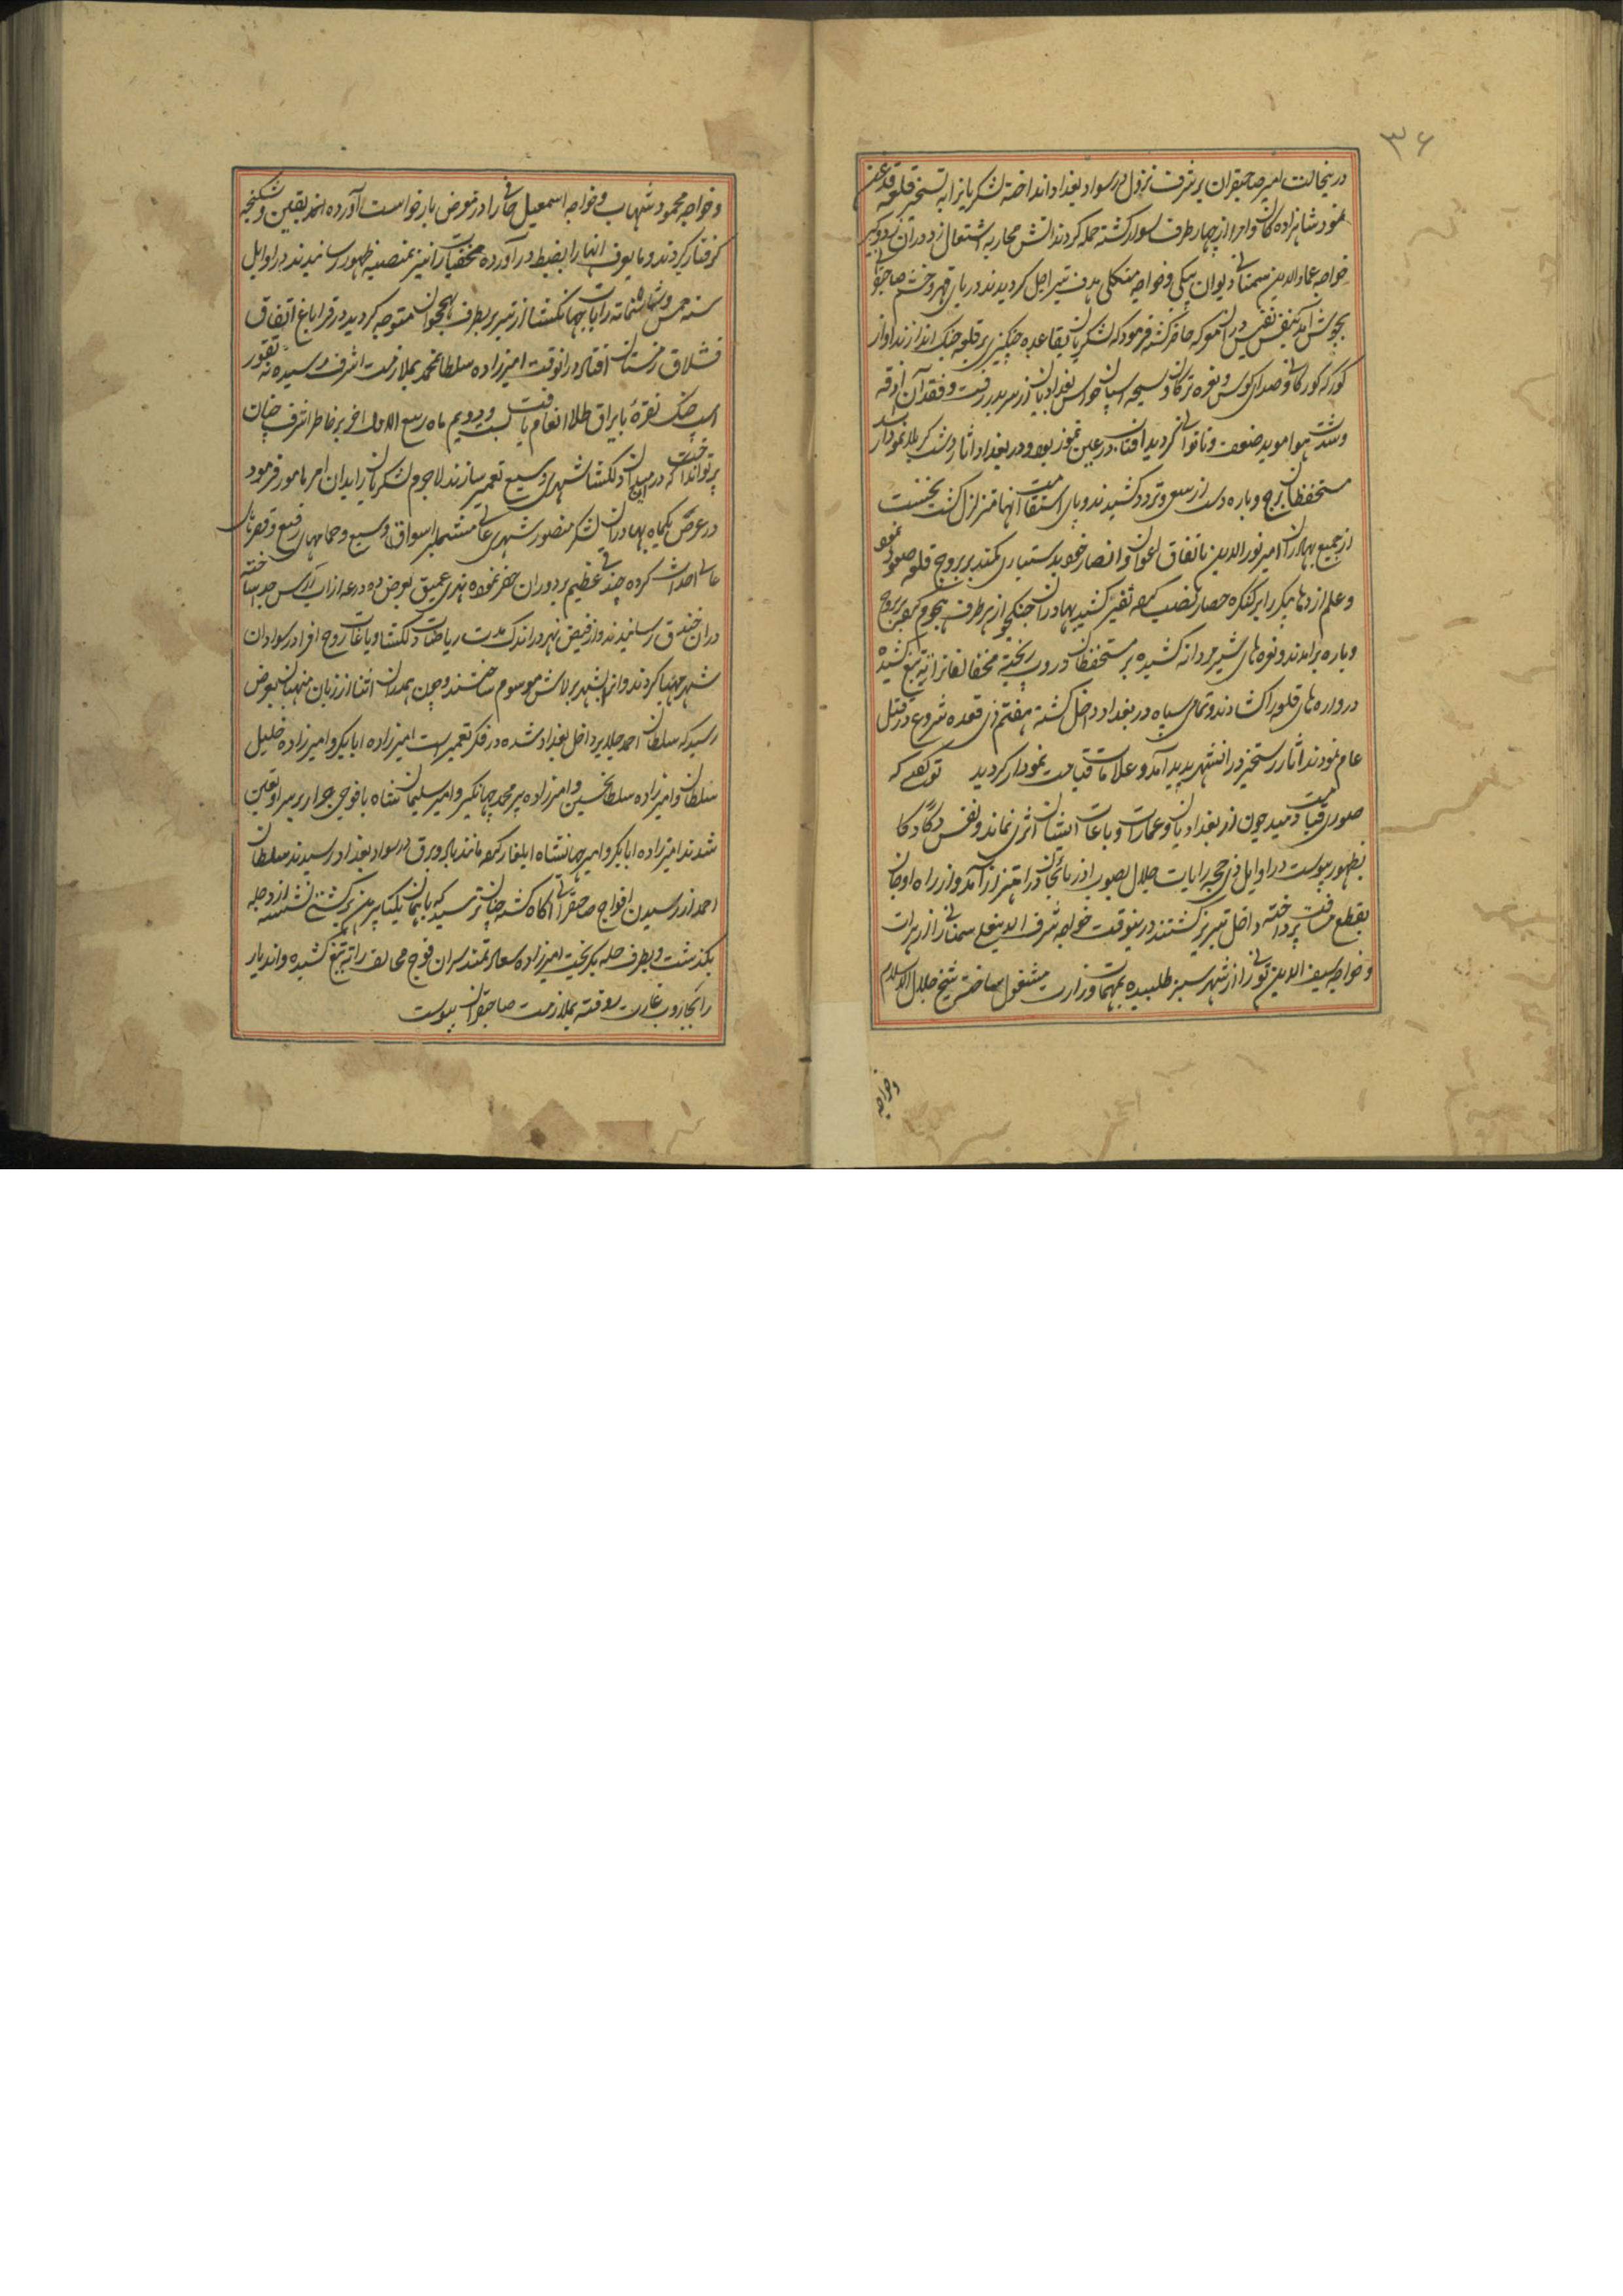 ۳۶
درینحالت امیر صاحبقران پرتو شرف نزول در سواد بغداد انداخته لشکریانرا به تسخیر قلعه قدغن
نمود شاهزاده کان و امرا از چهار طرف سوار کشته حمله کردند آتش محاربه اشتعال زد دران
خواجه عمادالدین سمنانی دیوان بیکی و خواجه منکلی هدف تیر اجل کردیدند دریای قهر و خشم صاحبقرانی
بجوش آمد بنفس نفیس دران معرکه حاضر کشته فرمود که لشکریان بقاعده چنکیزی بر قلعه جنک اندازند آواز
کورکه کورکانی و صدای کوس و نعره ترکان و سپحه اسپان حواس بغدادیان از سر بدر رفت و فقدان آذوقه
و شدت هوا موید ضعف و ناتوانی کردید آفتاب در عین تموز بود و در بغداد آثار دشت کربلا نمودار شد
مستحفظان برج و باره دست از سعی و تردد کشیدند و پای استقامت آنها متزلزل کشت نخست
از جمیع بهادران امیر نورالدین باتفاق اعوان و انصار خود بدستیاری کمند بر بروج قلعه صعود نمود
و علم اژدها پیکر را بر کنکره حصار نصب کرده نفیر کشید بهادران جنکجو از هر طرف هجوم کرده بر بروج
و باره برآمدند و نعره های شیر مردانه کشیده بر مستحفظان درون ریخته مخالفانرا به تیغ کشیده
دروازه های قلعه را کشادند و تمامی سپاه در بغداد داخل کشته هفتم ذی قعده شروع در قتل
عام نمودند آثار رستخیز در انشهر پدید آمد و علامات قیامت نمودار کردید تو کفتی که
صور قیامت دمید چون از بغدادیان و عمارات و باغات ایشان اثری نماند و نفس
بظهور پیوست در اوایل ذی حجه رایات جلال بصوب آذربایجان در اهتزاز آمد و از راه اوجان
بقطع مسافت پرداخته داخل تبریز کشتند درینوقت خواجه شرف الدینعلی سمنانی را از هرات
و خواجه سیف الدین تونی را از شهر سبز طلبیده بمهمات وزارت مشغول ساختند شیخ جلال الاسلام
و خواجه
و خواجه محمود شهاب و خواجه اسمعیل خانی را در معرض بازخواست آورده اخذ بقین و شکنجه
کرفتار کردند و مایعرف آنها را بضبط در آورده مخفیات را نیز بمنصه ظهور رسانیدند در اوایل
سنه خمس و ثمانمائه رایات جهانکشا از تبریز بطرف نخجوان متوجه کردید در قراباغ اتفاق
قشلاق زمستان افتاد در انوقت امیرزاده سلطان محمد بملازمت اشرف رسیده نه تقور
اسپ خنک نقره با یراق طلا انعام یافت بیست و دویم ماه ربیع الاول اخر بر خاطر اشرف چنان
پرتو انداخت که در میدان دلکشا شهری وسیع تعمیر سازند لاجرم لشکریان را بدان امر مامور فرمود
در عرض یکماه بهادران لشکر منصور شهری عالی مشتملبر اسواق وسیع و حمامهای رفیع و قصرهای
عالی احداث کرده خندقی عظیم بر دوران حفر نموده نهری عمیق بعرض ده درعه از آب ارس جدا ساخته
دران خندق رسانیدند و از فیض نهر در اندک مدت ریاضات دلکشا و باغات روح افزا در سواد آن
شهر مهیا کردند و انرا بشهر برلاس موسوم ساختند و چون همدران اثنا از زبان منهیان بعرض
رسید که سلطان احمد جلایر داخل بغداد شده در فکر تعمیر است امیرزاده ابابکر و امیرزاده خلیل
سلطان و امیرزاده سلطانحسین و امیرزاده پیر محمد جهانکیر و امیر سلیمان شاه با فوجی جرار بر سر او تعین
شدند امیرزاده ابابکر و امیر جهانشاه ایلغار کرده مانند باد و برق در سواد بغداد رسیدند سلطان
احمد از رسیدن افواج صاحبقرانی آگاه کشته چنان ترسید که با همان یکتا پیرهن بر کشتی نشسته از دجله
بگذشت و بطرف حله بگریخت امیرزاده سعادتمند سران فوج مخالف را به تیغ کشیده و اندیار
را بجاروب غارت روفته بملازمت صاحبقران پیوست